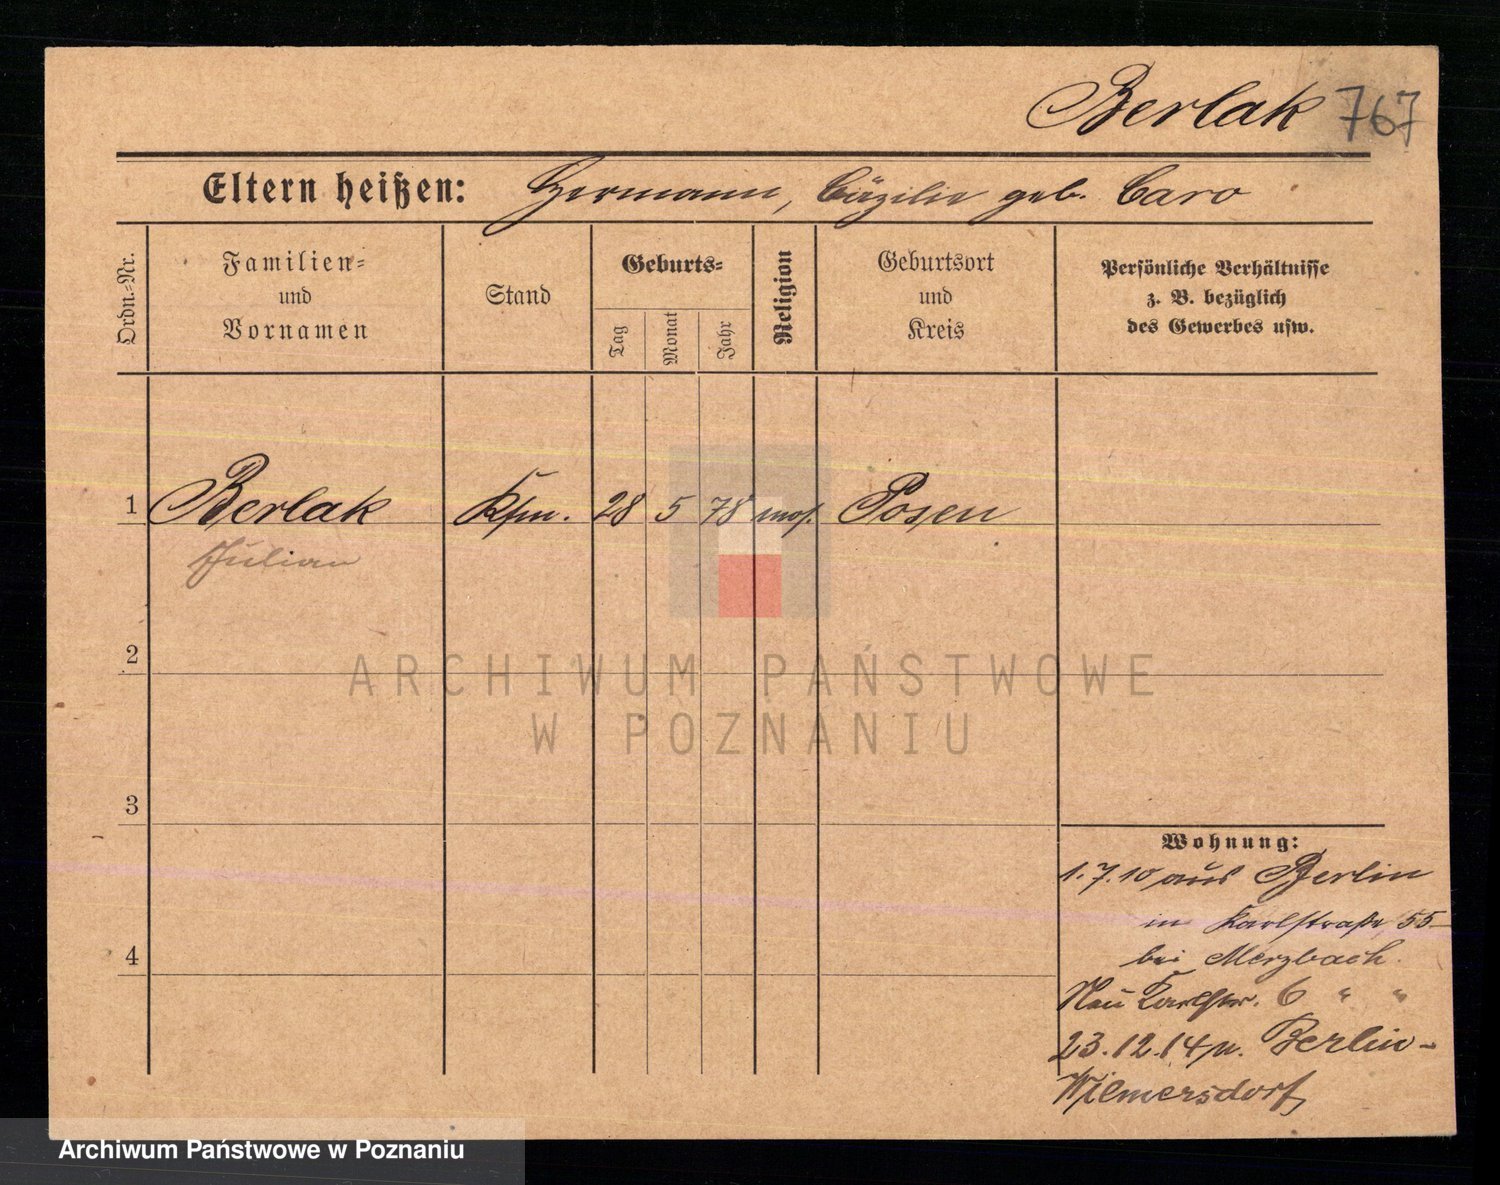 Berlak 767
Eltern heißen: Hermann, Cäzilie geb. Caro
Ordn.-Nr.
Familien-
und
Vornamen
Stand
Geburts-
Tag
Monat
Jahr
Religion
Geburtsort
und
Kreis
Persönliche Verhältnisse
z. B. bezüglich
des Gewerbes usw.
1 Berlak Kfm. 28 5 78 mos. Posen
Julian
2
3
4
Wohnung:
1.7.10 aus Berlin
in Karlstraße 55
bei Merzbach.
Neu Karlstr. 6 " "
23.12.14 n. Berlin-
Wilmersdorf
ARCHIWUM PAŃSTWOWE
W POZNANIU
Archiwum Państwowe w Poznaniu